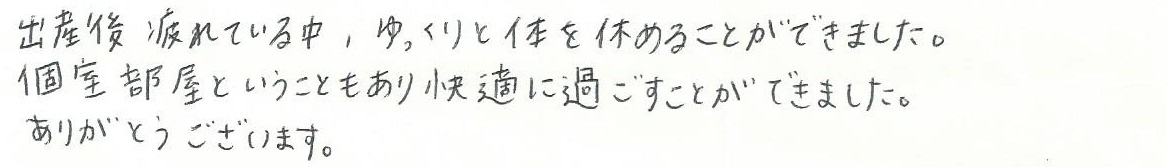 出産後疲れている中，ゆっくりと体を休めることができました。
個室部屋ということもあり快適に過ごすことができました。
ありがとうございます。